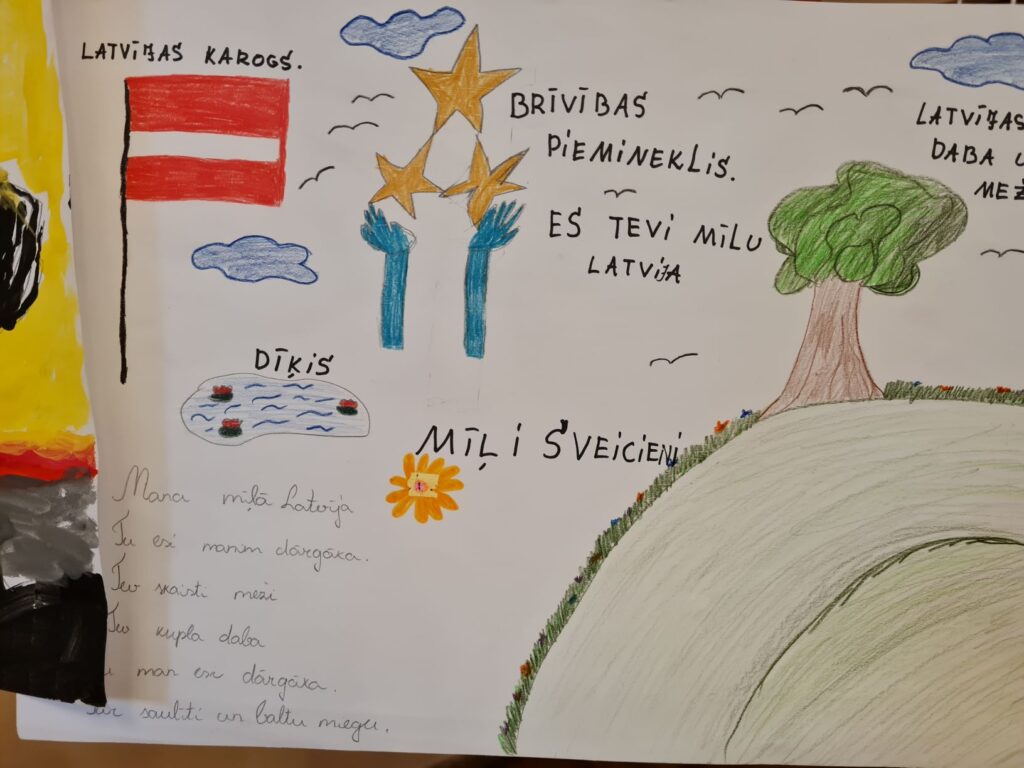 LATVIJAS KAROGS.
BRĪVĪBAS
PIEMINEKLIS.
ES TEVI MĪLU
LATVIJA
LATVIJAS
DABA
DĪĶIS
MĪĻI SVEICIENI
Mana mīļā Latvija
Tu esi manim dārgāka.
Tev skaisti meži
Tev kupla daba
man esi dārgāka.
saulīti un baltu miegu.